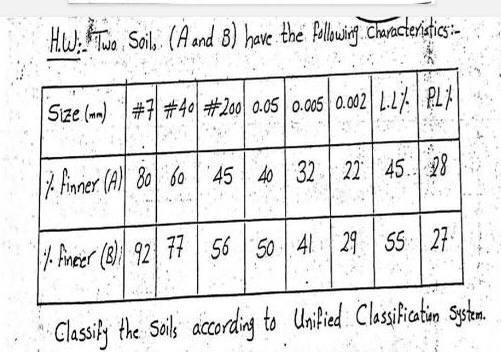 H.W:- Two Soils (A and B) have the following characteristics:-
Size (mm) #7 #40 #200 0.05 0.005 0.002 L.L% P.L%
% finner (A) 80 60 45 40 32 22 45 28
% fineer (B) 92 77 56 50 41 29 55 27
Classify the Soils according to Unified Classification System.